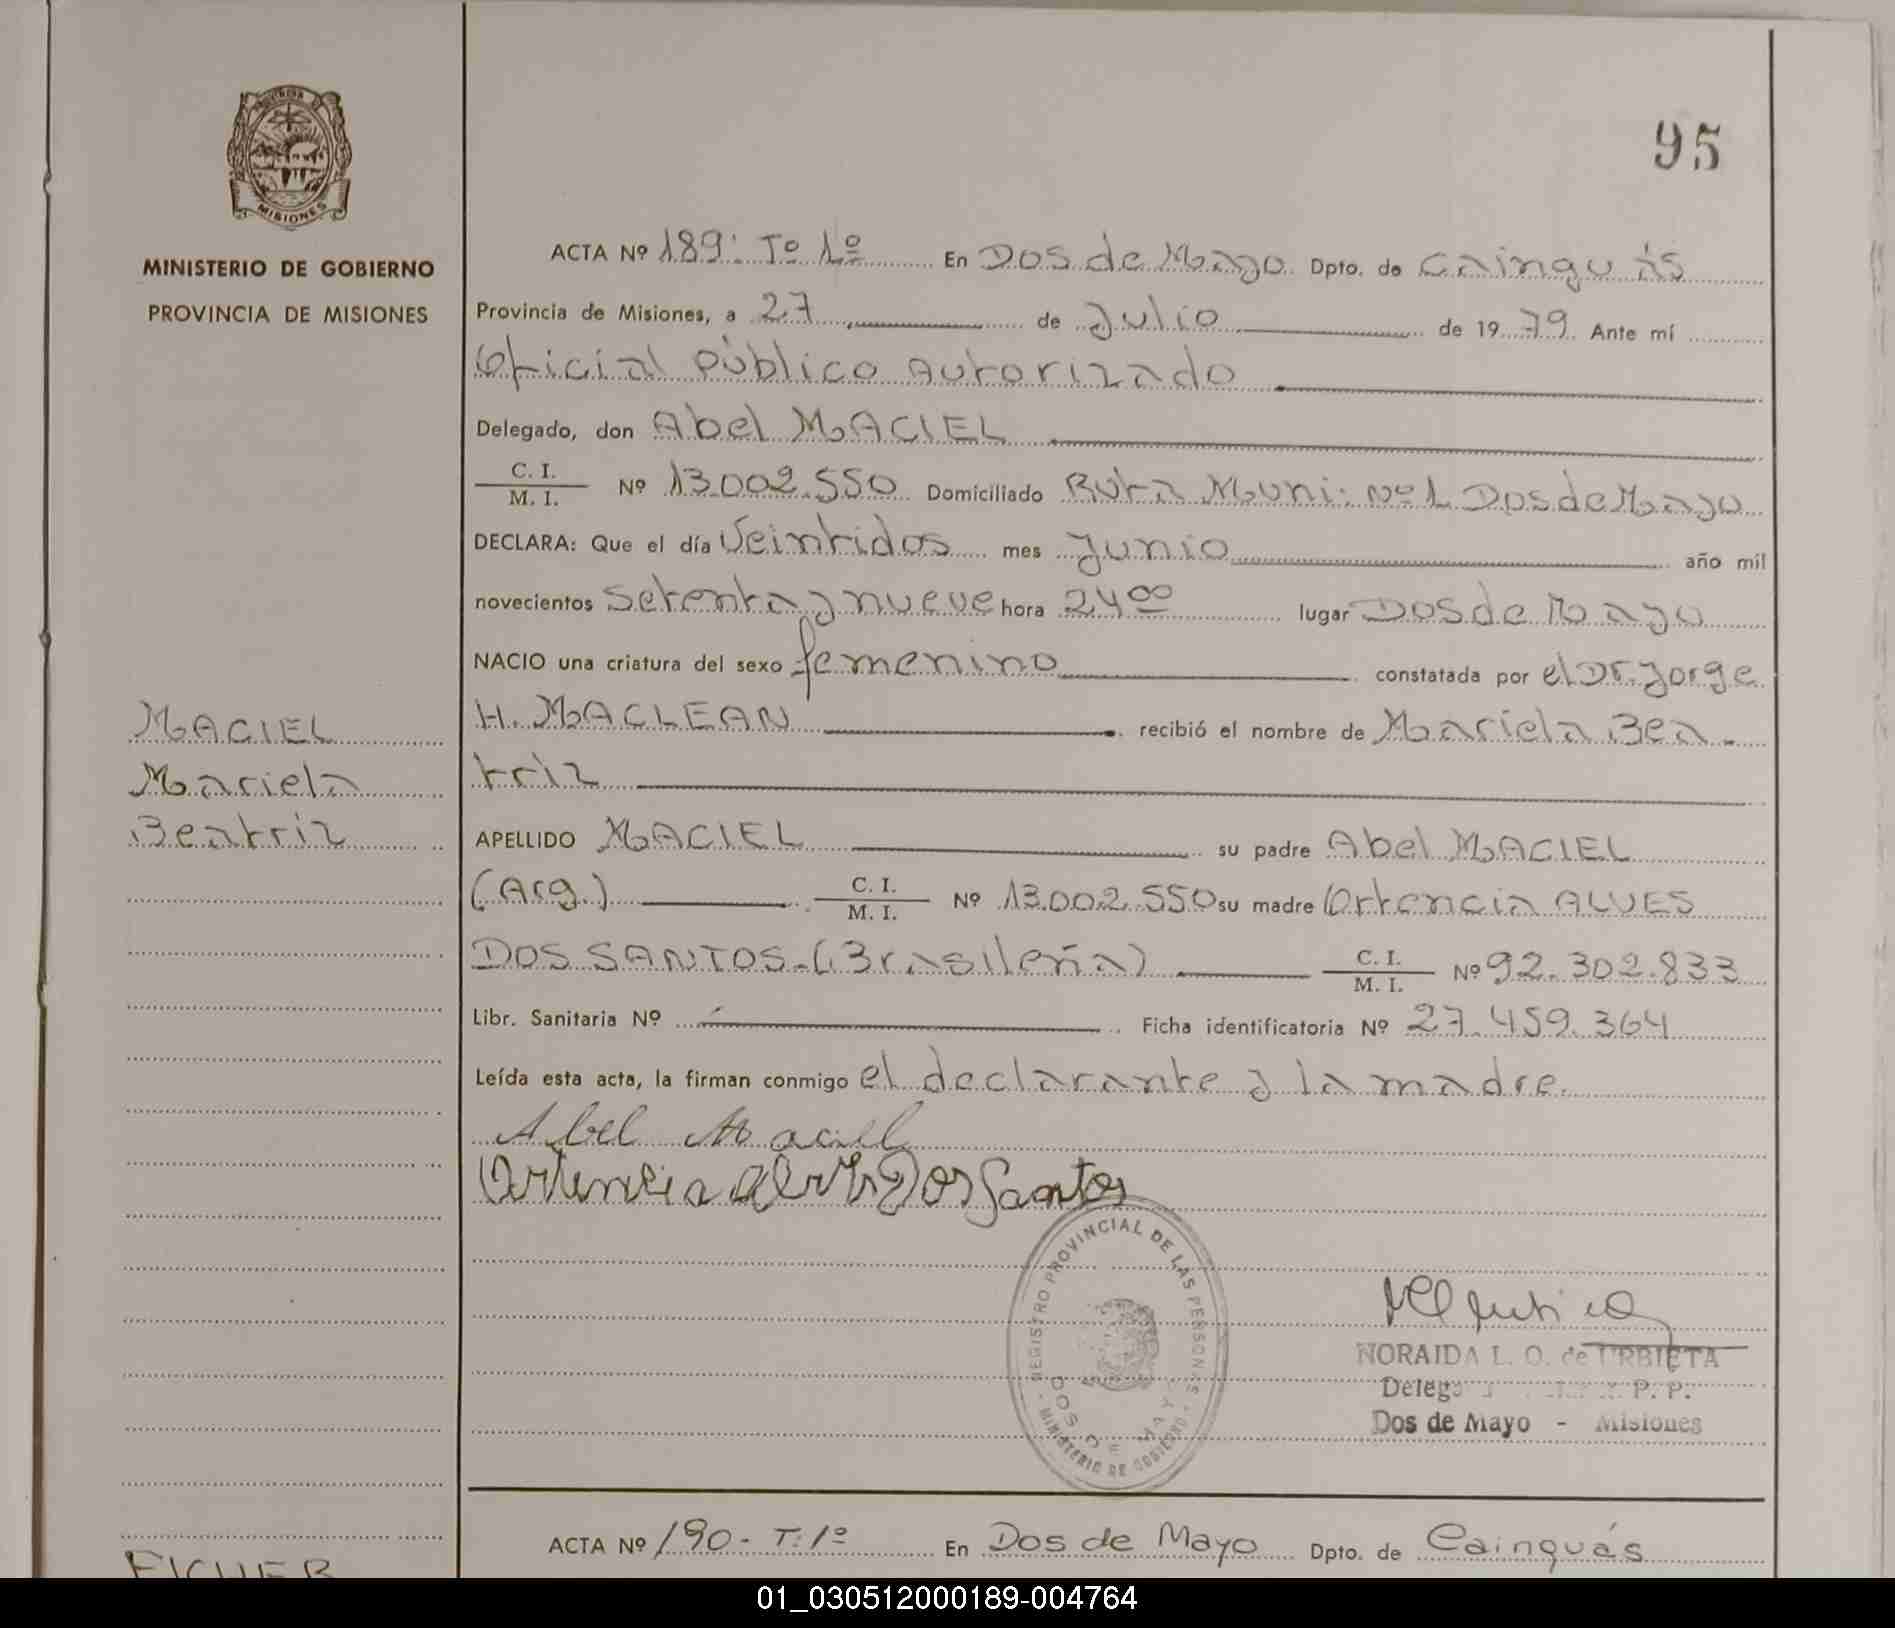 95
PROVINCIA DE
MISIONES
MINISTERIO DE GOBIERNO
PROVINCIA DE MISIONES
ACTA Nº 189: Tº 1º En Dos de Mayo Dpto. de Cainguás
Provincia de Misiones, a 27 de Julio de 1979 Ante mí
Oficial Público Autorizado
Delegado, don Abel MACIEL
C. I.
M. I. Nº 13.002.550 Domiciliado Ruta Muni: Nº 1 Dos de Mayo
DECLARA: Que el día Veintidos mes Junio año mil
novecientos setenta y nueve hora 24 00 lugar Dos de Mayo
NACIO una criatura del sexo femenino constatada por el Dr. Jorge
H. MACLEAN recibió el nombre de Mariela Bea-
triz
APELLIDO MACIEL su padre Abel MACIEL
(Arg.) C. I.
M. I. Nº 13.002.550 su madre Ortencia ALVES
DOS SANTOS-(Brasileña) C. I.
M. I. Nº 92.302.833
Libr. Sanitaria Nº Ficha identificatoria Nº 27.459.364
Leída esta acta, la firman conmigo el declarante y la madre.
MACIEL
Mariela
Beatriz
Abel Maciel
Ortencia Alves Dos Santos
REGISTRO PROVINCIAL DE LAS PERSONAS
MINISTERIO DE GOBIERNO
DOS DE MAYO
NORAIDA L. O. de URBIETA
P. P.
Dos de Mayo - Misiones
ACTA Nº 190- T: 1º En Dos de Mayo Dpto. de Cainguás
01_030512000189-004764